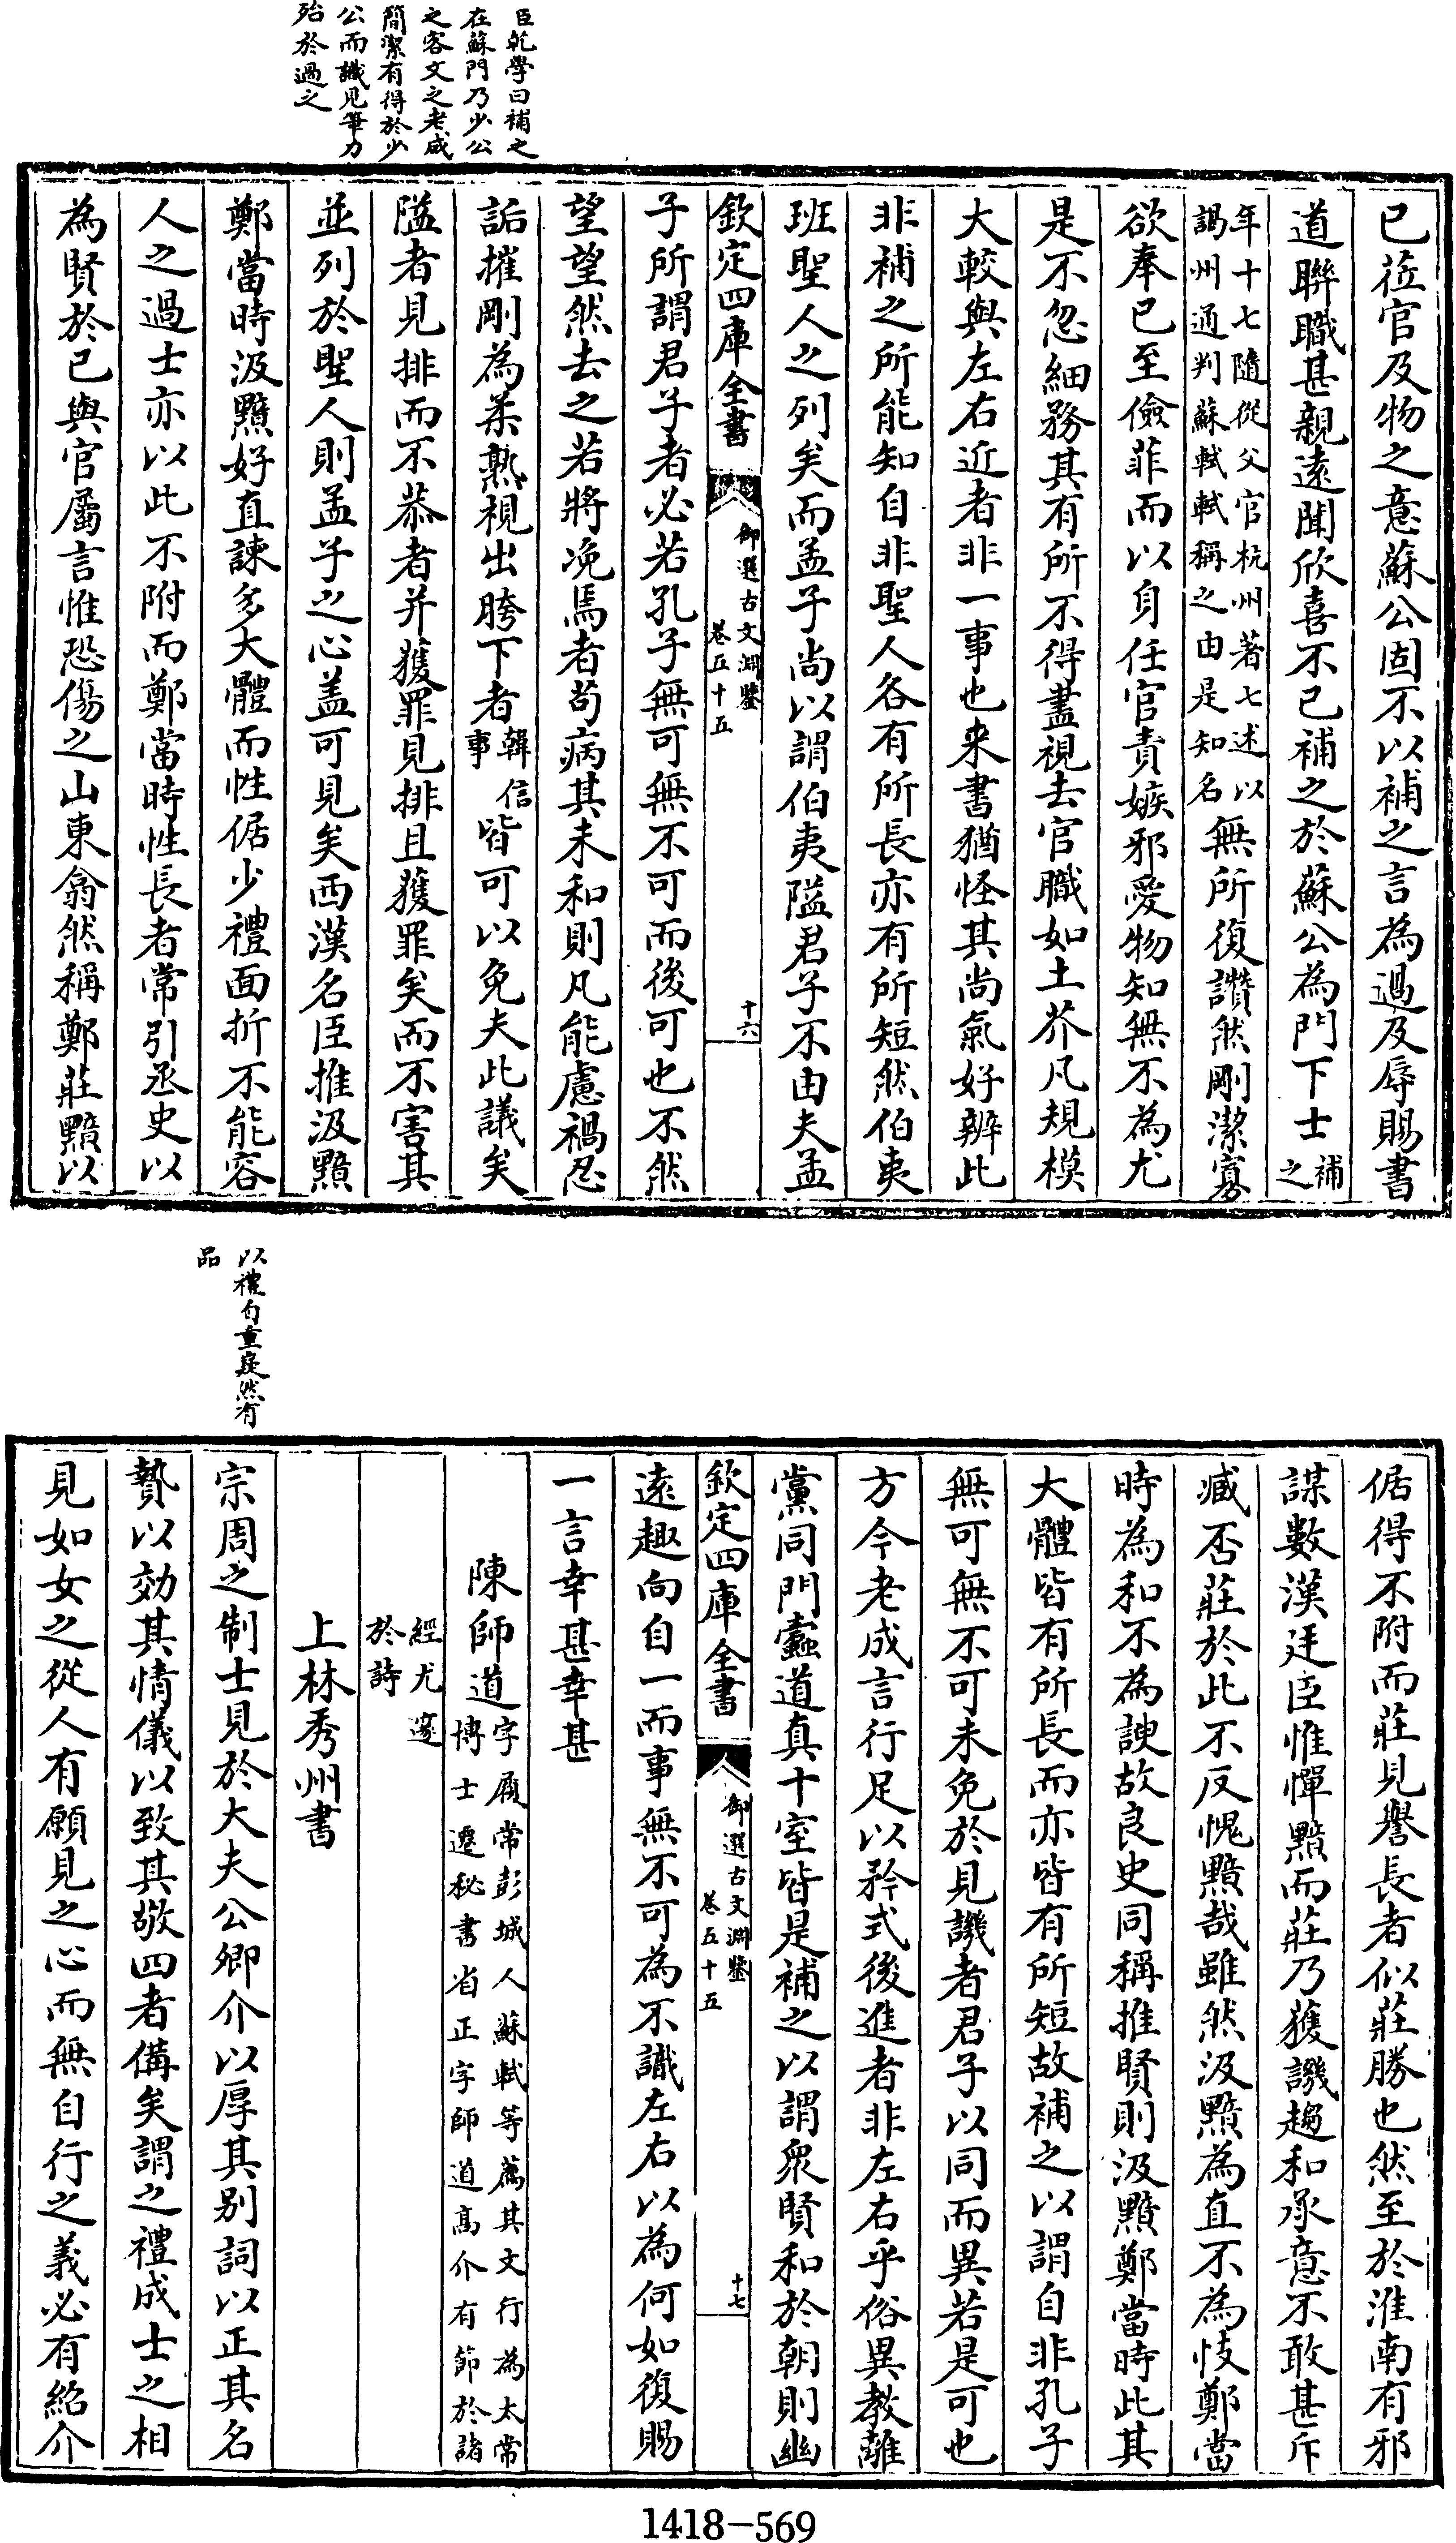 臣乾學曰補之
在蘇門乃少公
之客文之老成
簡潔有得於少
公而識見筆力
殆於過之
已莅官及物之意蘇公固不以補之言為過及辱賜書
道聯職甚親遠聞欣喜不已補之於蘇公為門下士補之
年十七隨從父官杭州著七述以
謁州通判蘇軾軾稱之由是知名
無所復讚然剛潔寡
欲奉已至儉菲而以身任官責嫉邪愛物知無不為尤
是不忽細務其有所不得盡視去官職如土芥凡規模
大較與左右近者非一事也來書猶怪其尚氣好辨此
非補之所能知自非聖人各有所長亦有所短然伯夷
班聖人之列矣而孟子尚以謂伯夷隘君子不由夫孟
欽定四庫全書
御選古文淵鑒
卷五十五
十六
子所謂君子者必若孔子無可無不可而後可也不然
望望然去之若將凂焉者茍病其未和則凡能慮禍忍
詬摧剛為柔熟視出胯下者韓信事皆可以免夫此議矣
隘者見排而不恭者并獲罪見排且獲罪矣而不害其
並列於聖人則孟子之心盖可見矣西漢名臣推汲黯
鄭當時汲黯好直諫多大體而性倨少禮面折不能容
人之過士亦以此不附而鄭當時性長者常引丞史以
為賢於已與官屬言惟恐傷之山東翕然稱鄭莊黯以
以禮自重嶷然有
品
倨得不附而莊見譽長者似莊勝也然至於淮南有邪
謀數漢廷臣惟憚黯而莊乃獲譏趨和承意不敢甚斥
臧否莊於此不反愧黯哉雖然汲黯為直不為忮鄭當
時為和不為諛故良史同稱推賢則汲黯鄭當時此其
大體皆有所長而亦皆有所短故補之以謂自非孔子
無可無不可未免於見譏者君子以同而異若是可也
方今老成言行足以矜式後進者非左右乎俗異教離
黨同門蠧道真十室皆是補之以謂衆賢和於朝則幽
欽定四庫全書
御選古文淵鑒
卷五十五
十七
遠趣向自一而事無不可為不識左右以為何如復賜
一言幸甚幸甚
陳師道
字履常彭城人蘇軾等薦其文行為太常
博士遷秘書省正字師道高介有節於諸
經尤邃
於詩
上林秀州書
宗周之制士見於大夫公卿介以厚其别詞以正其名
贄以効其情儀以致其敬四者備矣謂之禮成士之相
見如女之從人有願見之心而無自行之義必有紹介
1418-569